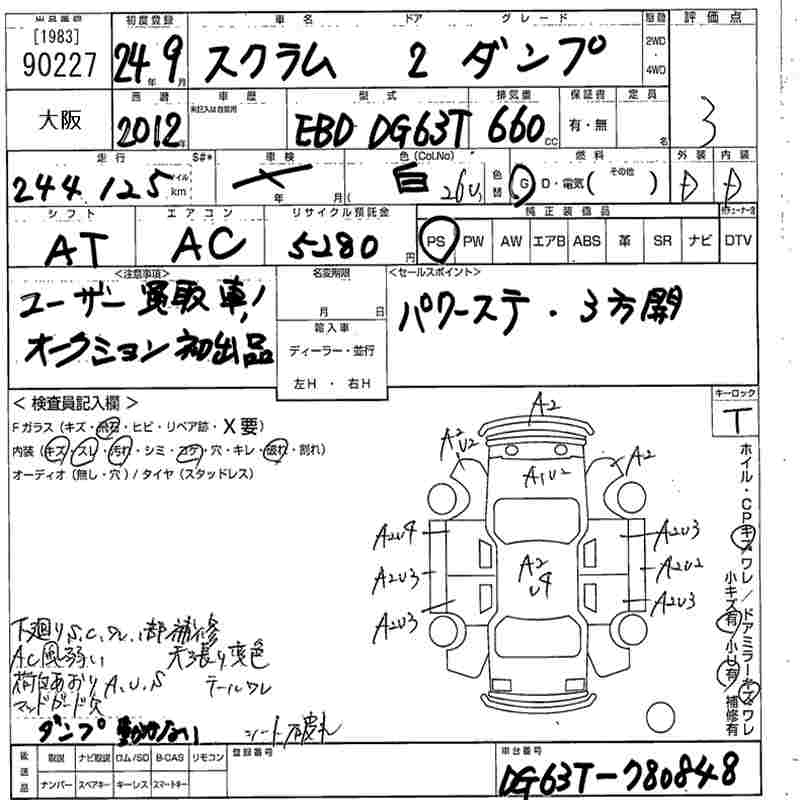 出品番号 初度登録 車名 ドア グレード 駆動 評価点
[1983]
90227 24年 9月 スクラム 2 ダンプ 2WD・4WD 3
大阪 歴 車歴 型式 排気量 保証書 定員
2012年 未記入は自家用 EBD DG63T 660cc 有・無 名
走行 S#* 車検 色(Col.No) 燃料 外装 内装
244,125 マイル km 年 月 白 26U 色替 G D・電気( その他 ) D D
シフト エアコン リサイクル預託金 純正装備品
AT AC 5280円 PS PW AW エアB ABS 革 SR ナビ DTV
<注意事項> 名変期限 <セールスポイント>
ユーザー買取車! 月 日 パワーステ・3方開
オークション初出品 輸入車
ディーラー・並行
左H・右H
<検査員記入欄> キーロック
Fガラス(キズ・飛石・ヒビ・リペア跡・X要) T
内装(キズ・スレ・汚れ・シミ・コゲ・穴・キレ・破れ・割れ)
オーディオ(無し・穴)/タイヤ(スタッドレス)
ホイル・CPキズワレ/ドアミラーキズワレ
小キズ有/小U有/補修有
A2
A2 U2 A2
A1U2
A2U4 A2U3
A2U3 A2 U4 A2U2
A2U3 A2U3
下廻りS.C. 部補修
AC風弱い 天張り変色
荷台あおりA,U,S テールワレ
マッドガード欠
ダンプ動かない シート破れ
後送品 取説 ナビ取説 ロム/SD B-CAS リモコン 登録番号 車台番号
ナンバー スペアキー キーレス スマートキー DG63T-780848